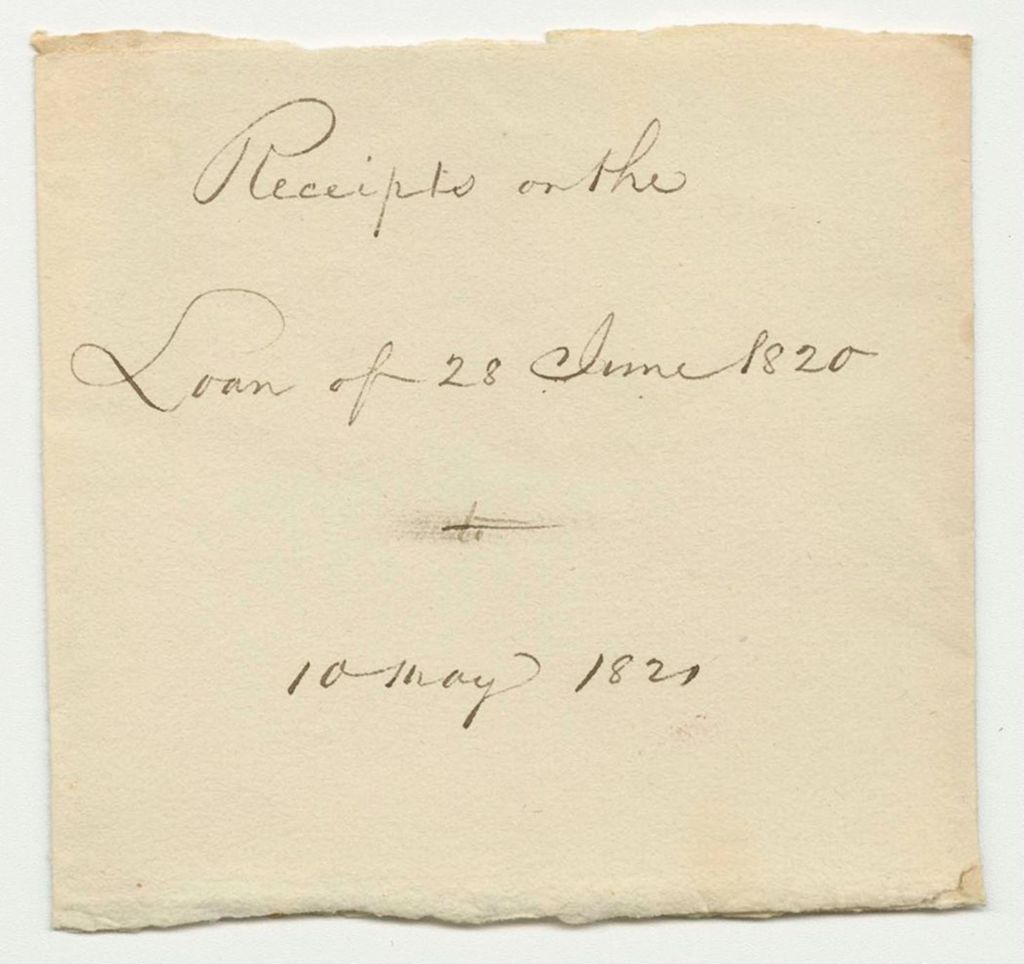 Receipts on the
Loan of 28 June 1820
to
10 May 1821